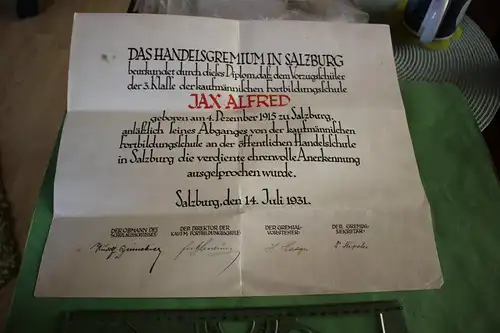 DAS HANDELSGREMIUM IN SALZBURG
beurkundet durch dieses Diplom, daß dem Vorzugsschüler
der 3. Klasse der kaufmännischen Fortbildungsschule
JAX ALFRED
geboren am 4. Dezember 1915 zu Salzburg,
anläßlich seines Abganges von der kaufmännischen
Fortbildungsschule an der öffentlichen Handelsschule
in Salzburg die verdiente ehrenvolle Anerkennung
ausgesprochen wurde.
Salzburg, den 14. Juli 1931.
DER OBMANN DES
SCHULAUSSCHUSSES:
DER DIREKTOR DER
KAUFM. FORTBILDUNGSSCHULE:
DER GREMIAL-
VORSTEHER:
DER GREMIAL-
SEKRETÄR: